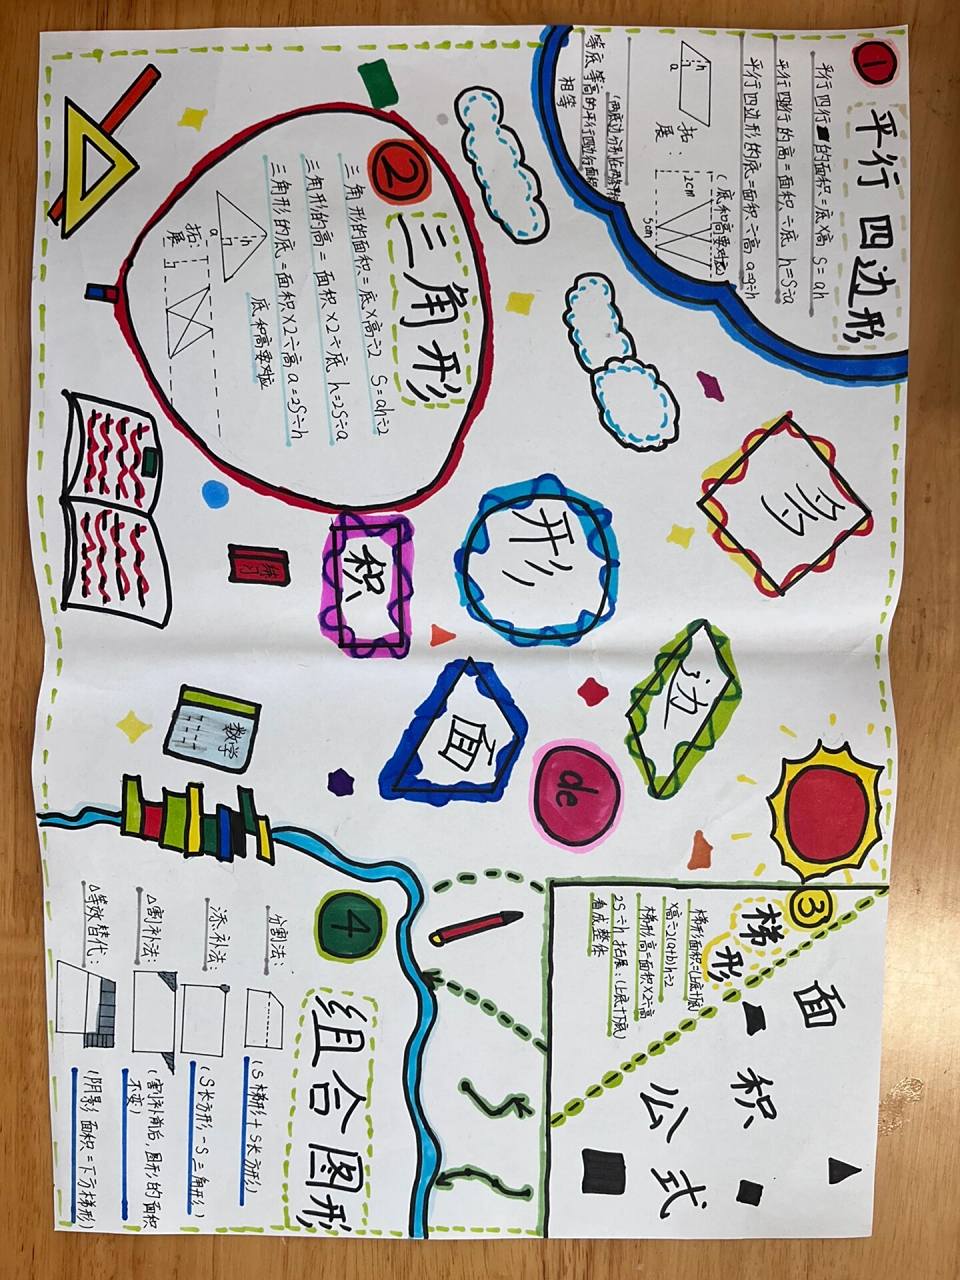 多
边
形
de
面
积
①
平行四边形
平行四行的面积=底×高 S=ah
平行四边形的高=面积÷底 h=S÷a
平行四边形的底=面积÷高 a=S÷h
(底和高要对应)
h
a
拓展:
2cm
5cm
等底等高的平行四边行面积相等
②
三角形
三角形的面积=底×高÷2 S=ah÷2
三角形的高=面积×2÷底 h=2S÷a
三角形的底=面积×2÷高 a=2S÷h
底和高要对应
h
a
拓展:
h
练习
数学
③
梯形
梯形面积=(上底+下底)
×高÷2(a+b)h÷2
梯形高=面积×2÷高
2S÷h 拓展:(上底+下底)
看成整体
面积公式
④
组合图形
分割法:
(S梯形+S长方形)
添补法:
(S长方形-S三角形)
△割补法:
(割补前后,图形的面积
不变)
△等效替代:
(阴影面积=下方梯形)